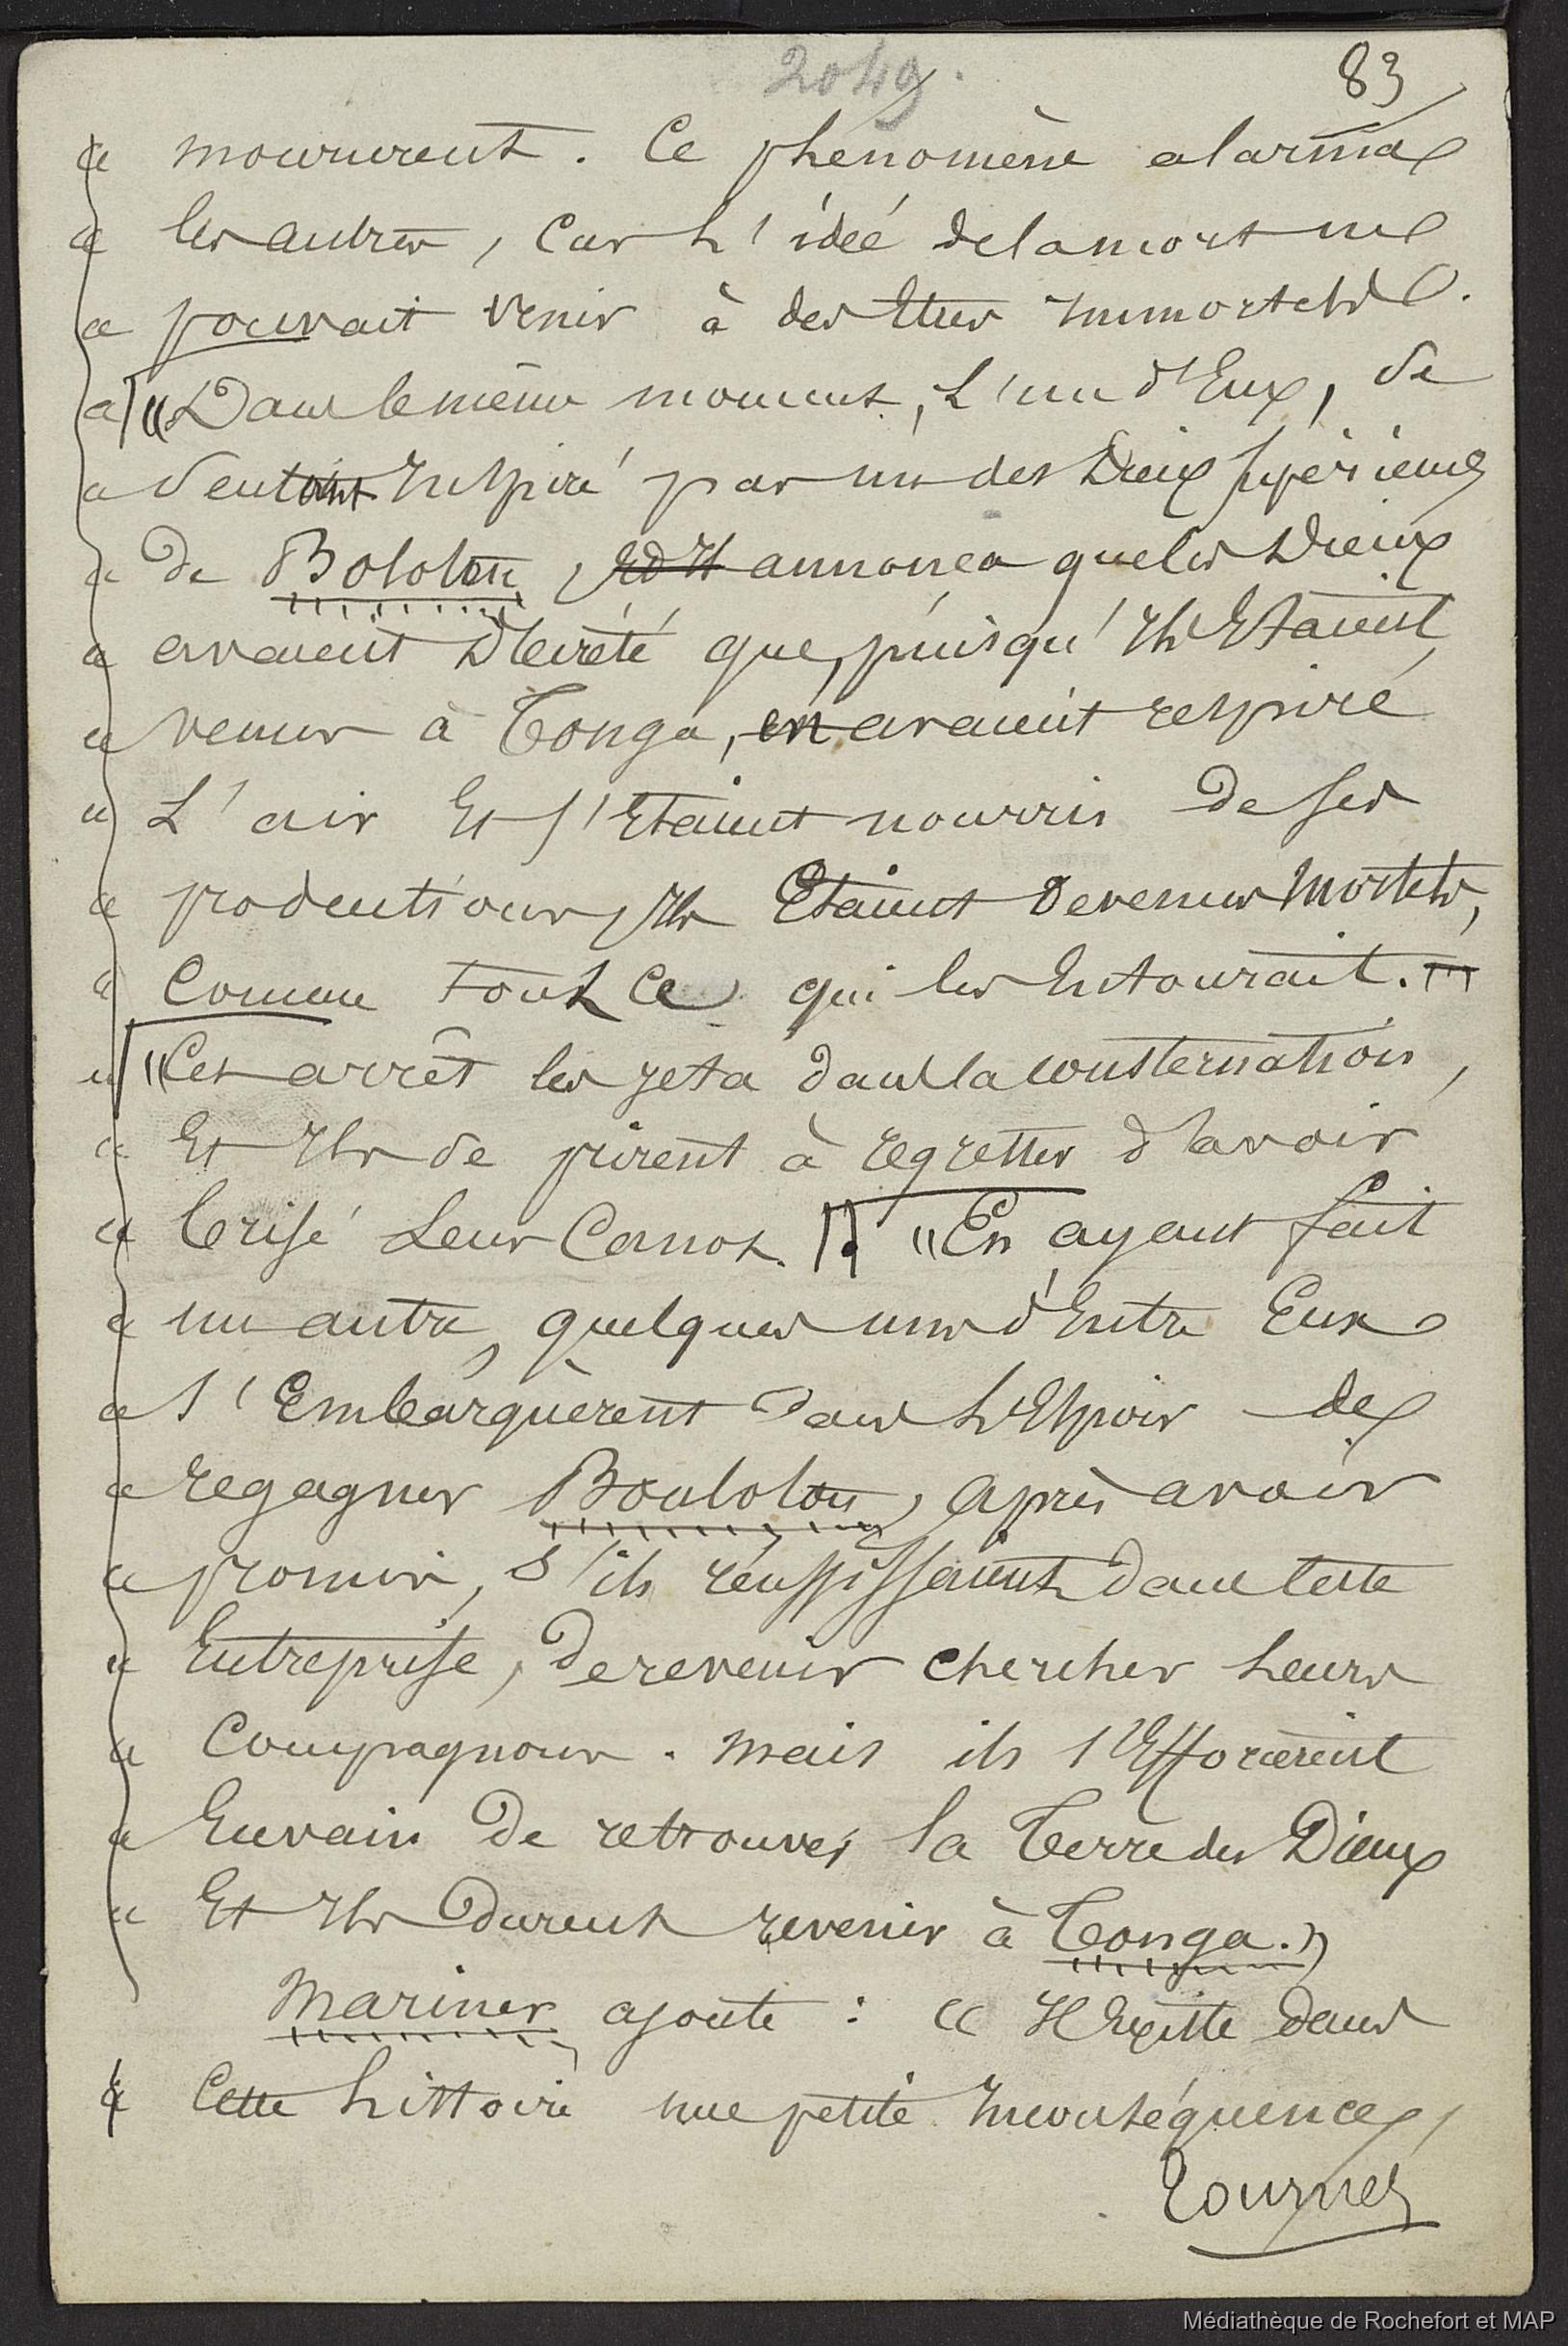 2049.
83
« moururent. Ce phénomène alarma
« les autres, Car L'idée de la mort ne
« pouvait venir à des Etres Immortels.
« "Dans le même moment, L'un d'Eux, se
« sentant Inspiré par un des Dieux supérieurs
« de Bolotou, annonça que les Dieux
« avaient Décrété que, puisqu'Ils Etaient
« venus à Tonga, en avaient respiré
« L'air Et s'Etaient nourris de ses
« productions, Ils Etaient Devenus Mortels,
« Comme tout Ce qui les Entourait. "
« "Cet arrêt les jeta dans la consternation,
« Et Ils se prirent à regretter d'avoir
« brisé Leur Canot. "En ayant fait
« un autre, quelques uns d'Entre Eux
« s'Embarquèrent dans L'Espoir de
« regagner Boulotou, après avoir
« promis, s'ils réussissaient dans cette
« Entreprise, de revenir chercher Leurs
« Compagnons. Mais ils s'Efforcèrent
« En vain De retrouver la Terre des Dieux
« Et Ils Durent revenir à Tonga. »
Mariner ajoute : « Il Existe dans
« Cette histoire une petite Inconséquence,
Tournez
Médiathèque de Rochefort et MAP